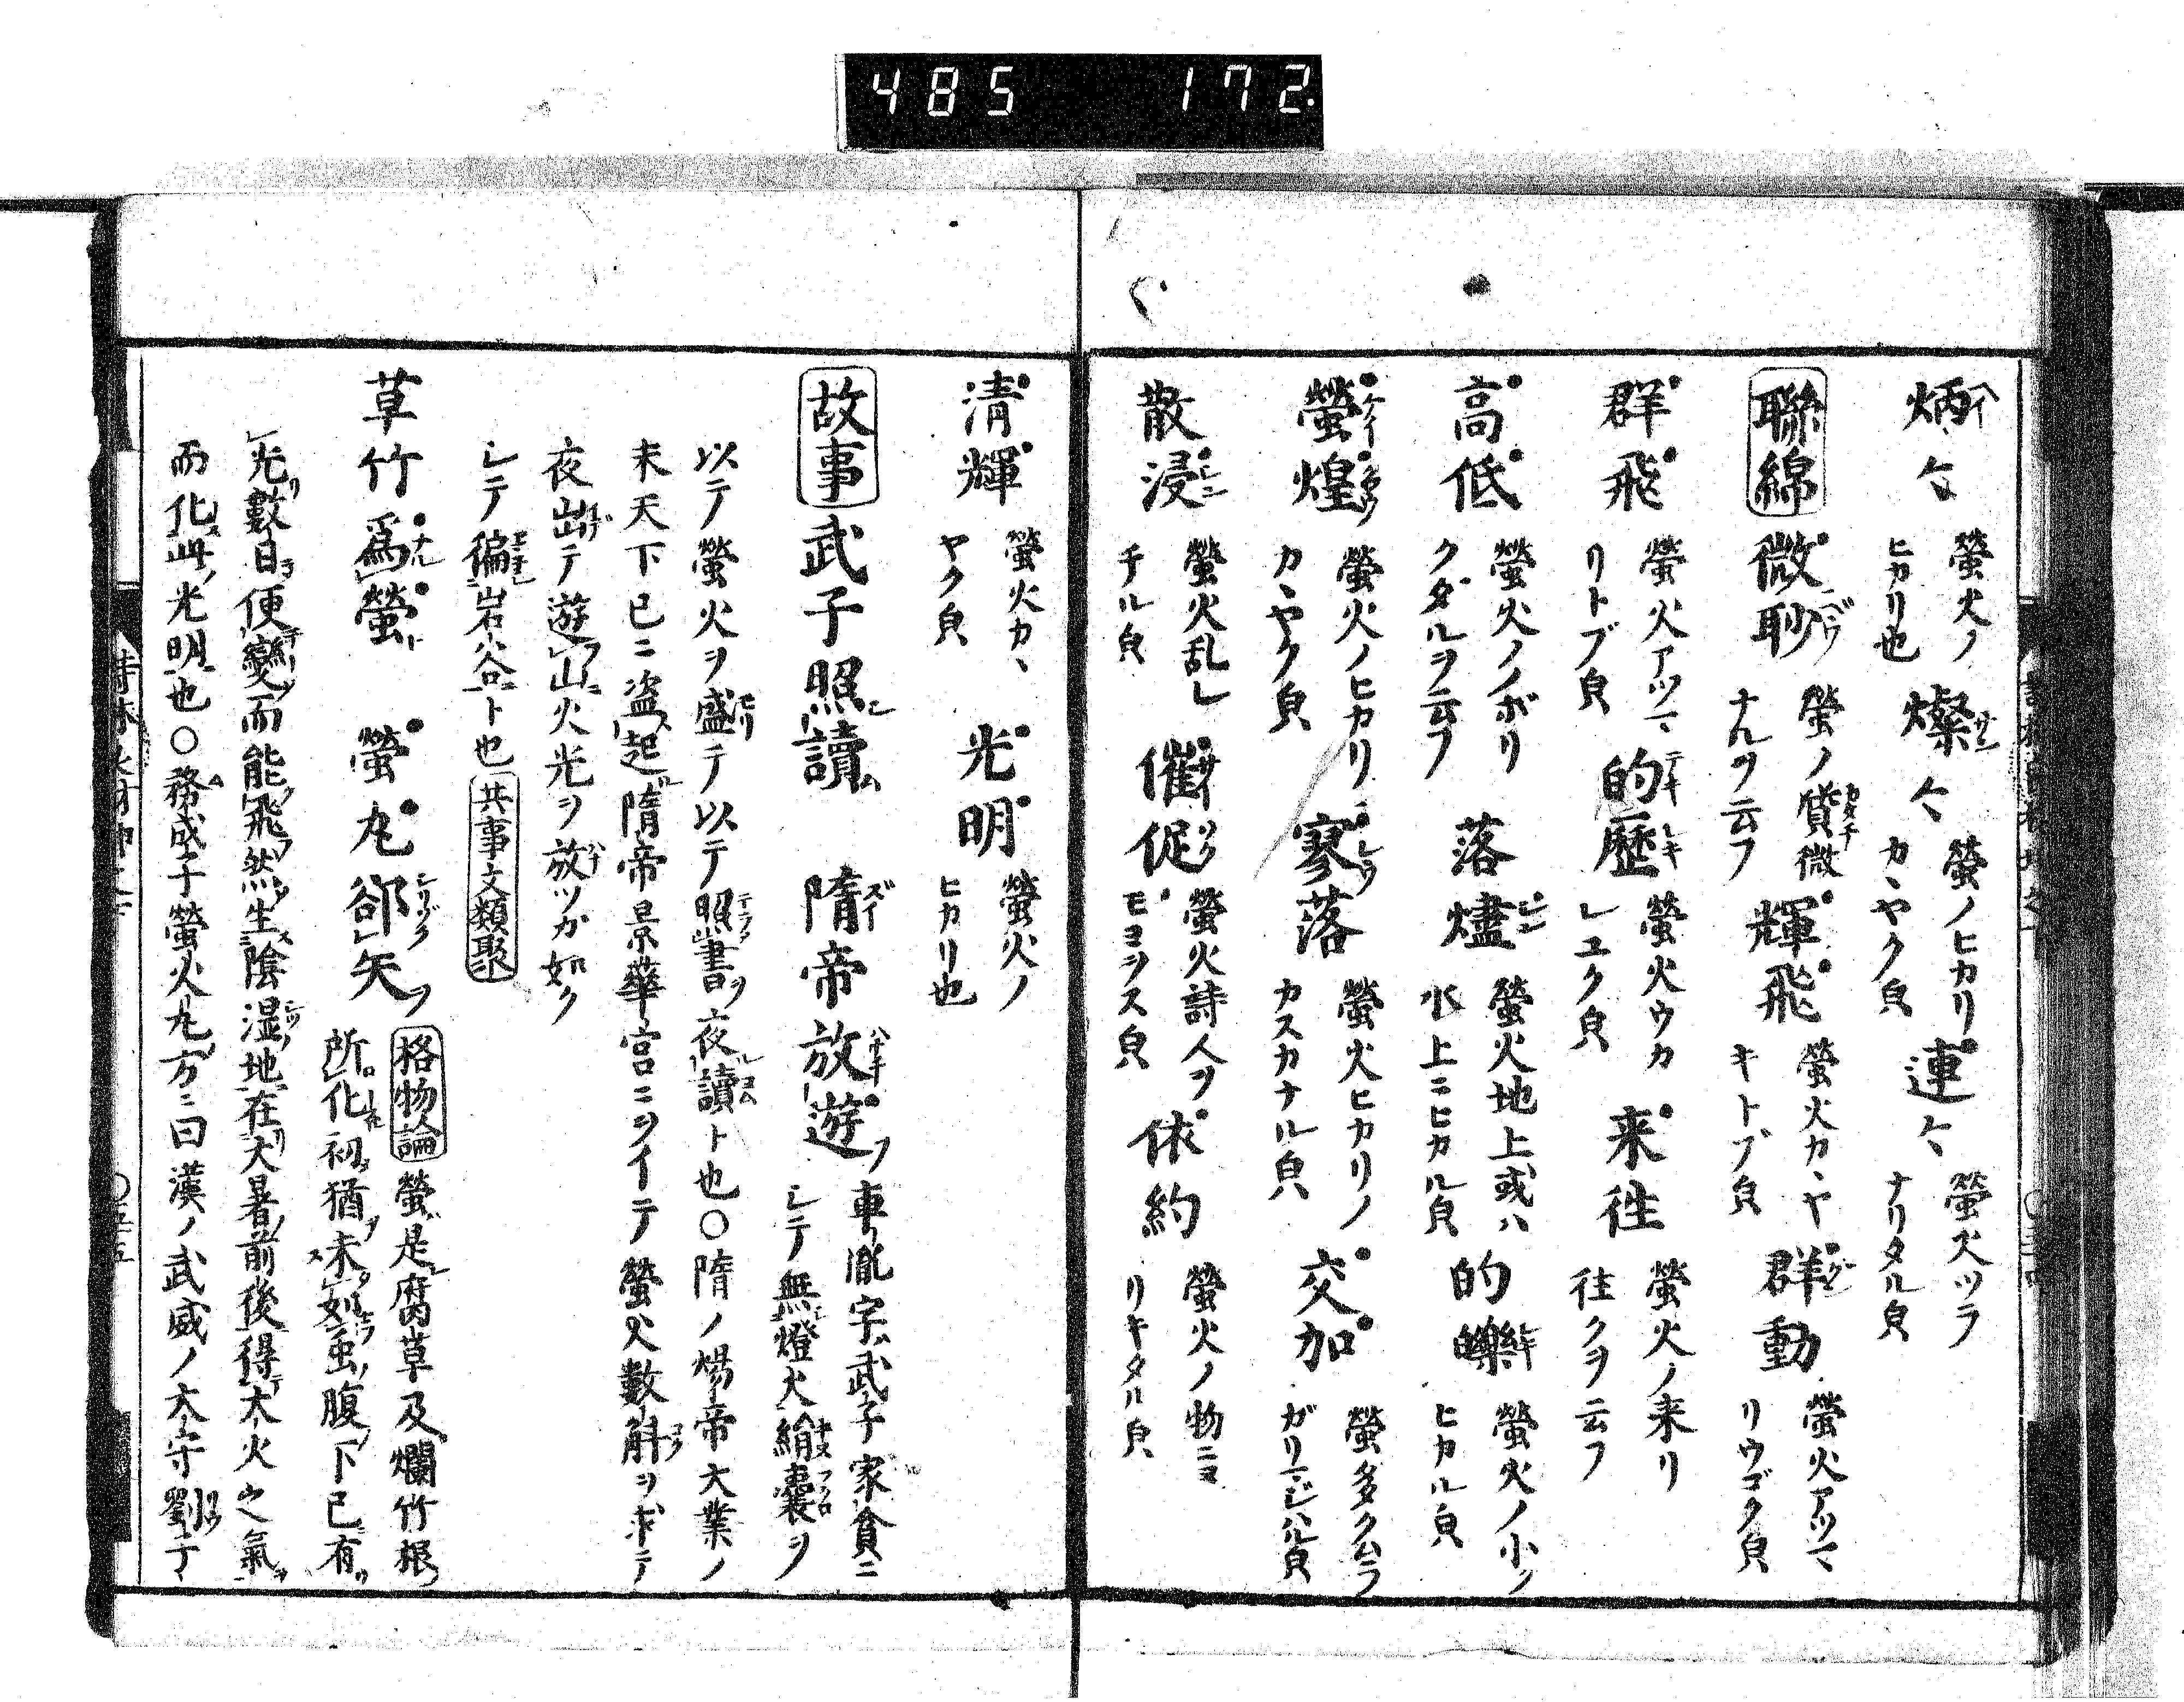 485 172.
炳〻 螢火ノヒカリ也 燦〻 螢ノヒカリカヽヤク皃 連〻 螢火ツラナリタル皃
聯綿 微眇 螢ノ貲微ナルヲ云フ 輝飛 螢火カヽヤキトブ皃 群動 螢火アツマリウゴク皃
群飛 螢火アツマリトブ皃 的歷 螢火ウカレユク皃 来徃 螢火ノ来リ徃クヲ云フ
高低 螢火ノノボリクダルヲ云フ 落燼 螢火地上或ハ水上ニヒカル皃 的皪 螢火ノ小クヒカル皃
螢煌 螢火ノヒカリカヽヤク皃 寥落 螢火ヒカリノカスカナル皃 交加 螢多クムラガリマジハル皃
散浸 螢火乱レチル皃 催促 螢火詩人ヲモヨヲス皃 依約 螢火ノ物ニヨリキタル皃
清輝 螢火カヽヤク皃 光明 螢火ノヒカリ也
故事 武子照讀 隋帝放遊 車胤字武子家貧ニシテ無燈火繪囊ヲ
以テ螢火ヲ盛テ以テ照書夜讀ト也〇隋ノ煬帝大業ノ
末天下已ニ盗起隋帝景華宮ニヲイテ螢火數斛ヲ求テ
夜出テ遊山火光ヲ放ツガ如ク
シテ徧岩谷ト也 共事文類聚
草竹爲螢 螢丸郤矢 格物論 螢是腐草及爛竹根
所化初猶未如虫腹下已有
光數日便變而能飛然生陰濕地在大暑前後得大火之氣
而化此光明也〇務成子螢火丸方ニ曰漢ノ武威ノ太守劉子